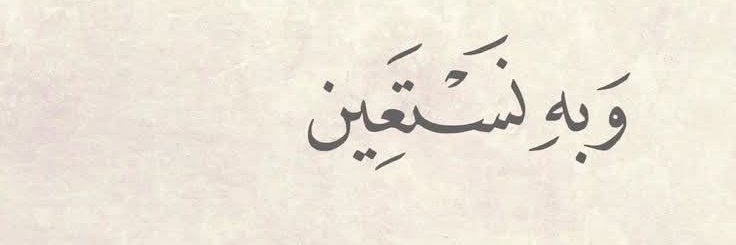 وَبِهِ نَسْتَعِين